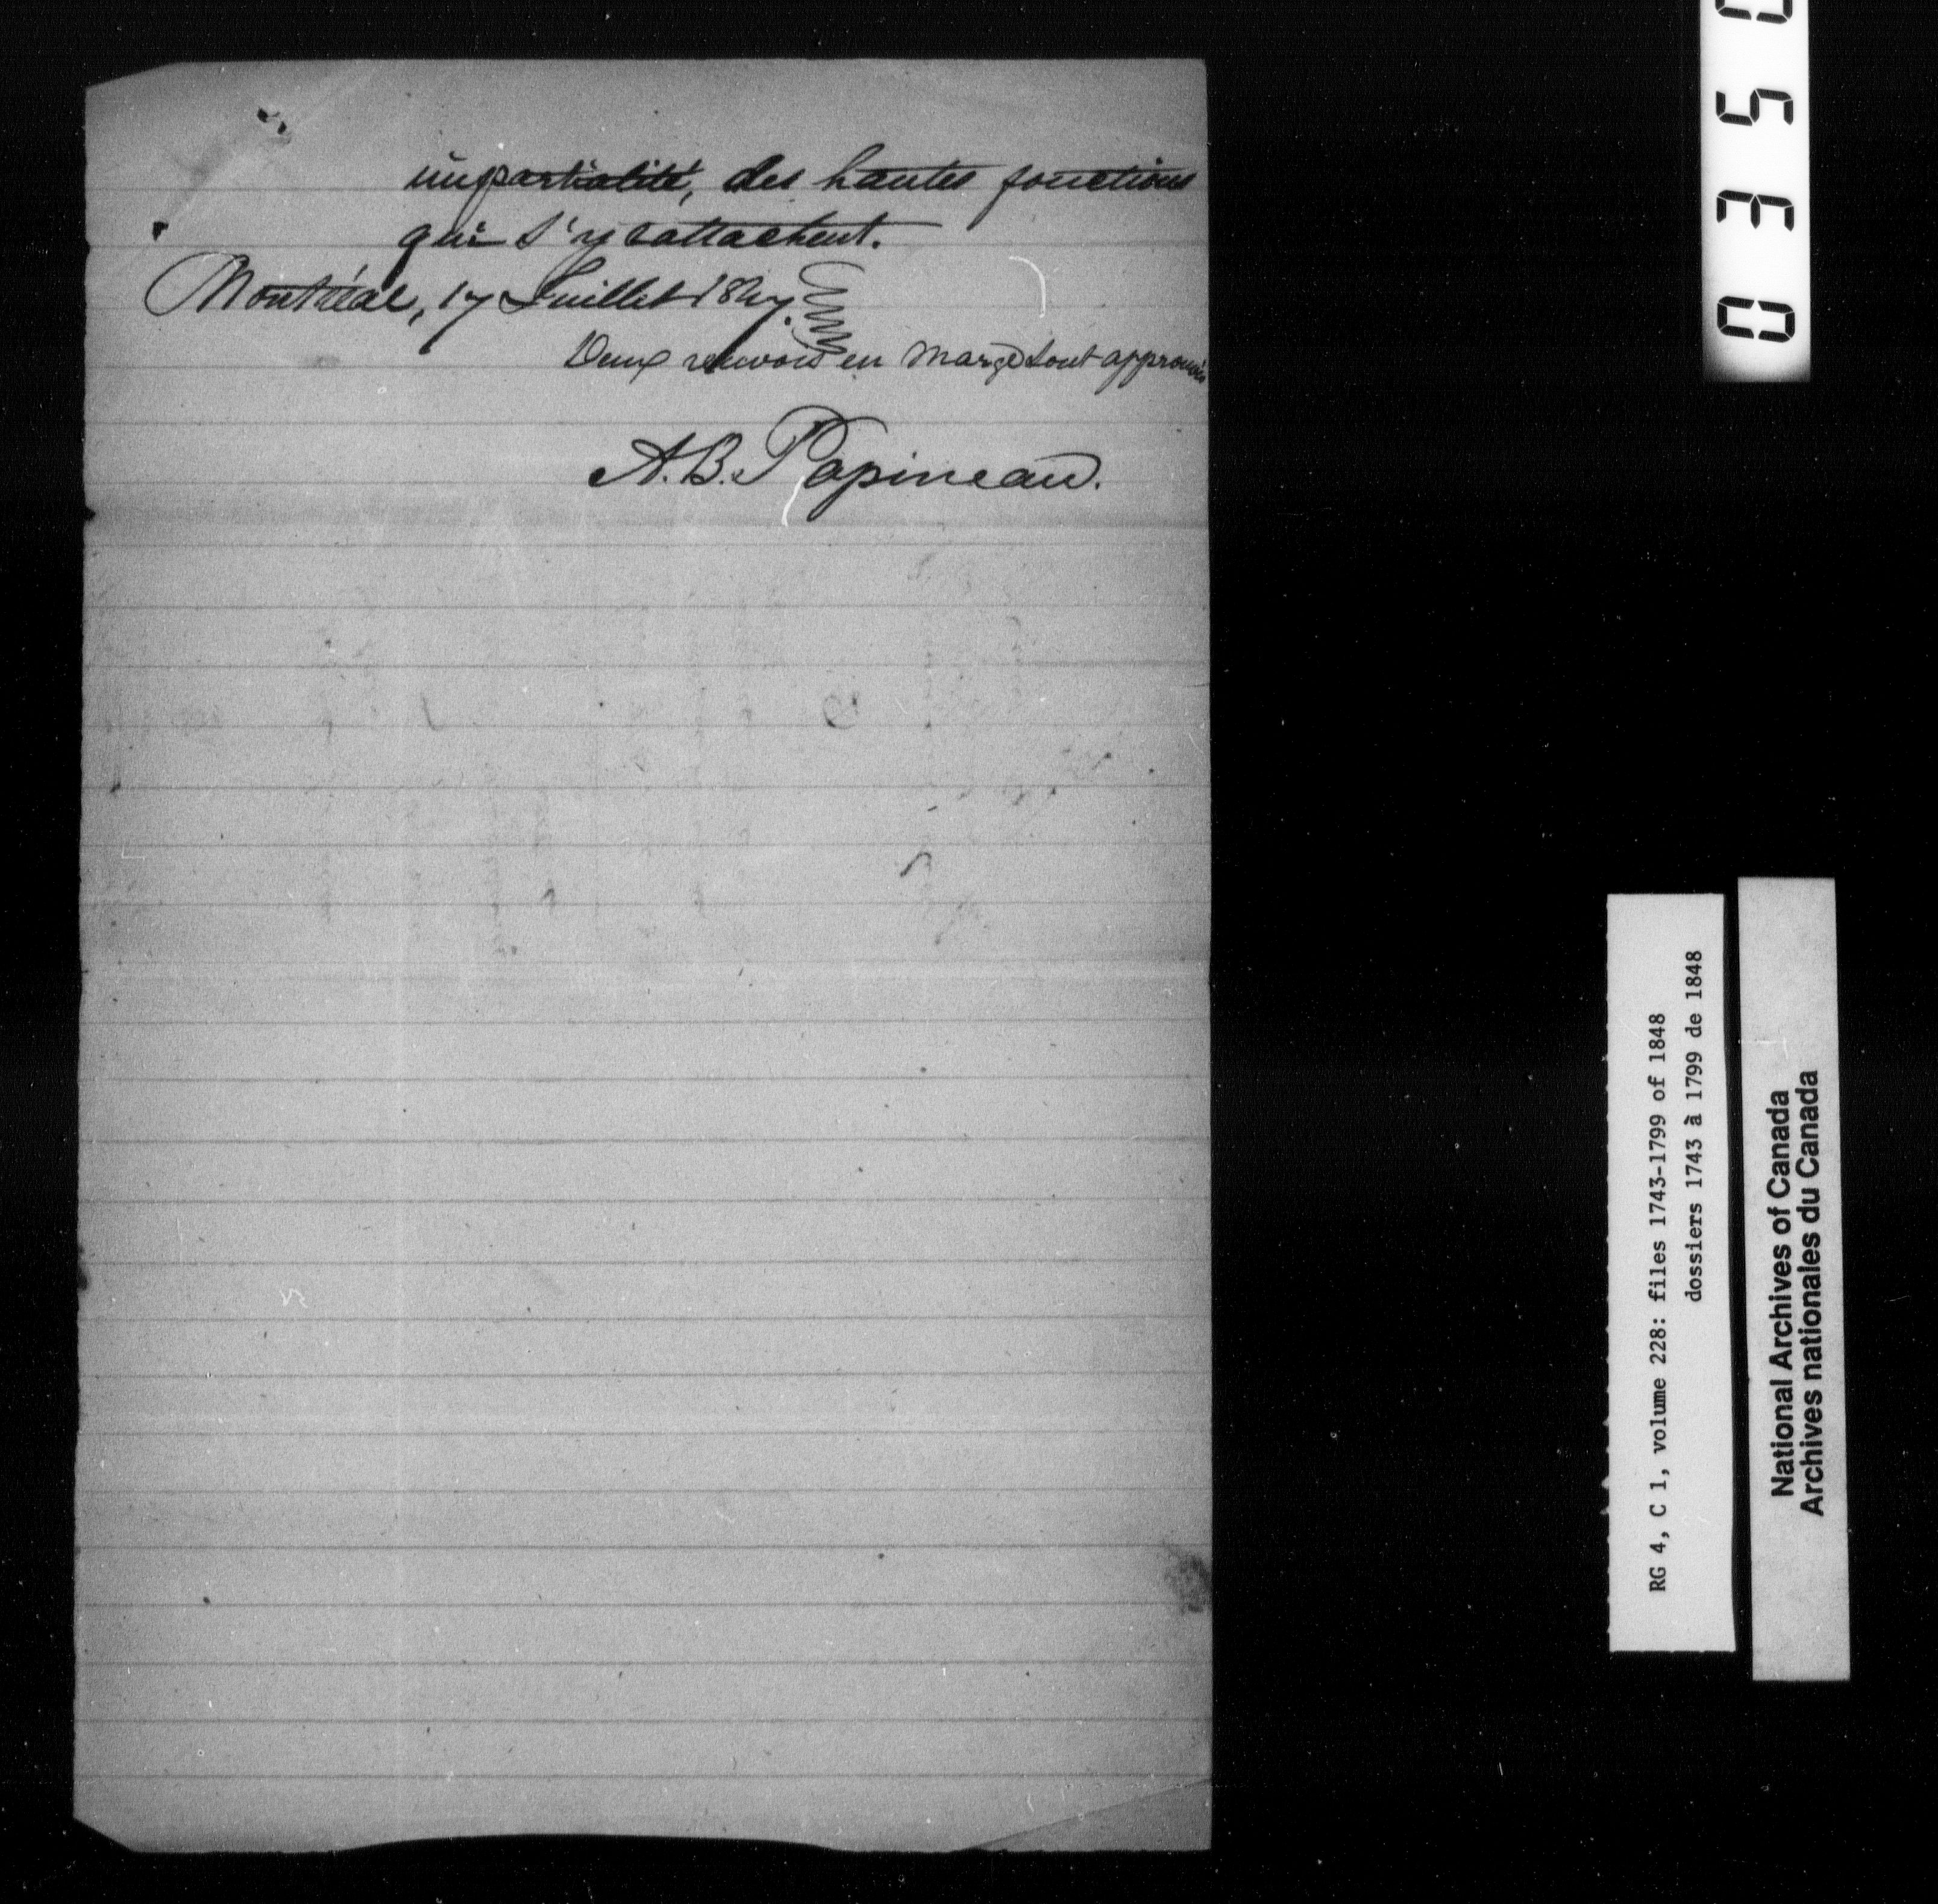 impartialité, des hautes fonctions
qui s'y rattachent.
Montréal, 17 Juillet 1847.
Deux renvois en marge sont approuvés
A. B. Papineau.
0350
RG 4, C 1, volume 228: files 1743-1799 of 1848
dossiers 1743 à 1799 de 1848
National Archives of Canada
Archives nationales du Canada